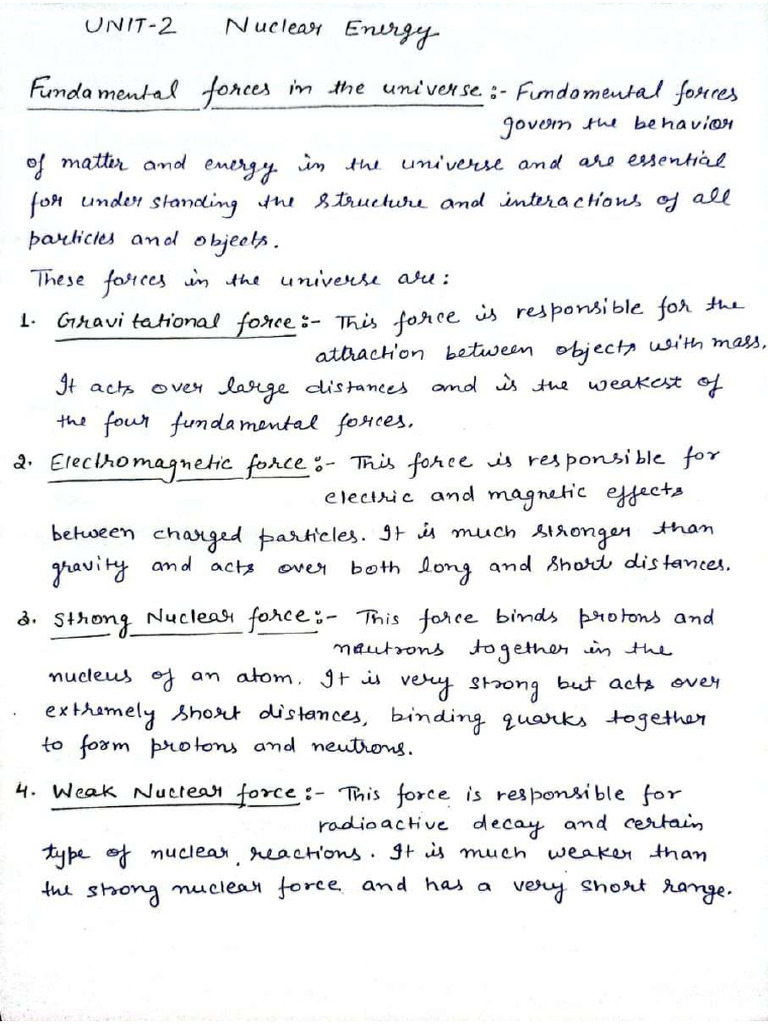 UNIT-2 Nuclear Energy
Fundamental forces in the universe :- Fundamental forces
govern the behavior
of matter and energy in the universe and are essential
for understanding the structure and interactions of all
particles and objects.
These forces in the universe are:
1. Gravitational force :- This force is responsible for the
attraction between objects with mass.
It acts over large distances and is the weakest of
the four fundamental forces.
2. Electromagnetic force :- This force is responsible for
electric and magnetic effects
between charged particles. It is much stronger than
gravity and acts over both long and short distances.
3. Strong Nuclear force :- This force binds protons and
neutrons together in the
nucleus of an atom. It is very strong but acts over
extremely short distances, binding quarks together
to form protons and neutrons.
4. Weak Nuclear force :- This force is responsible for
radioactive decay and certain
type of nuclear reactions. It is much weaker than
the strong nuclear force and has a very short range.